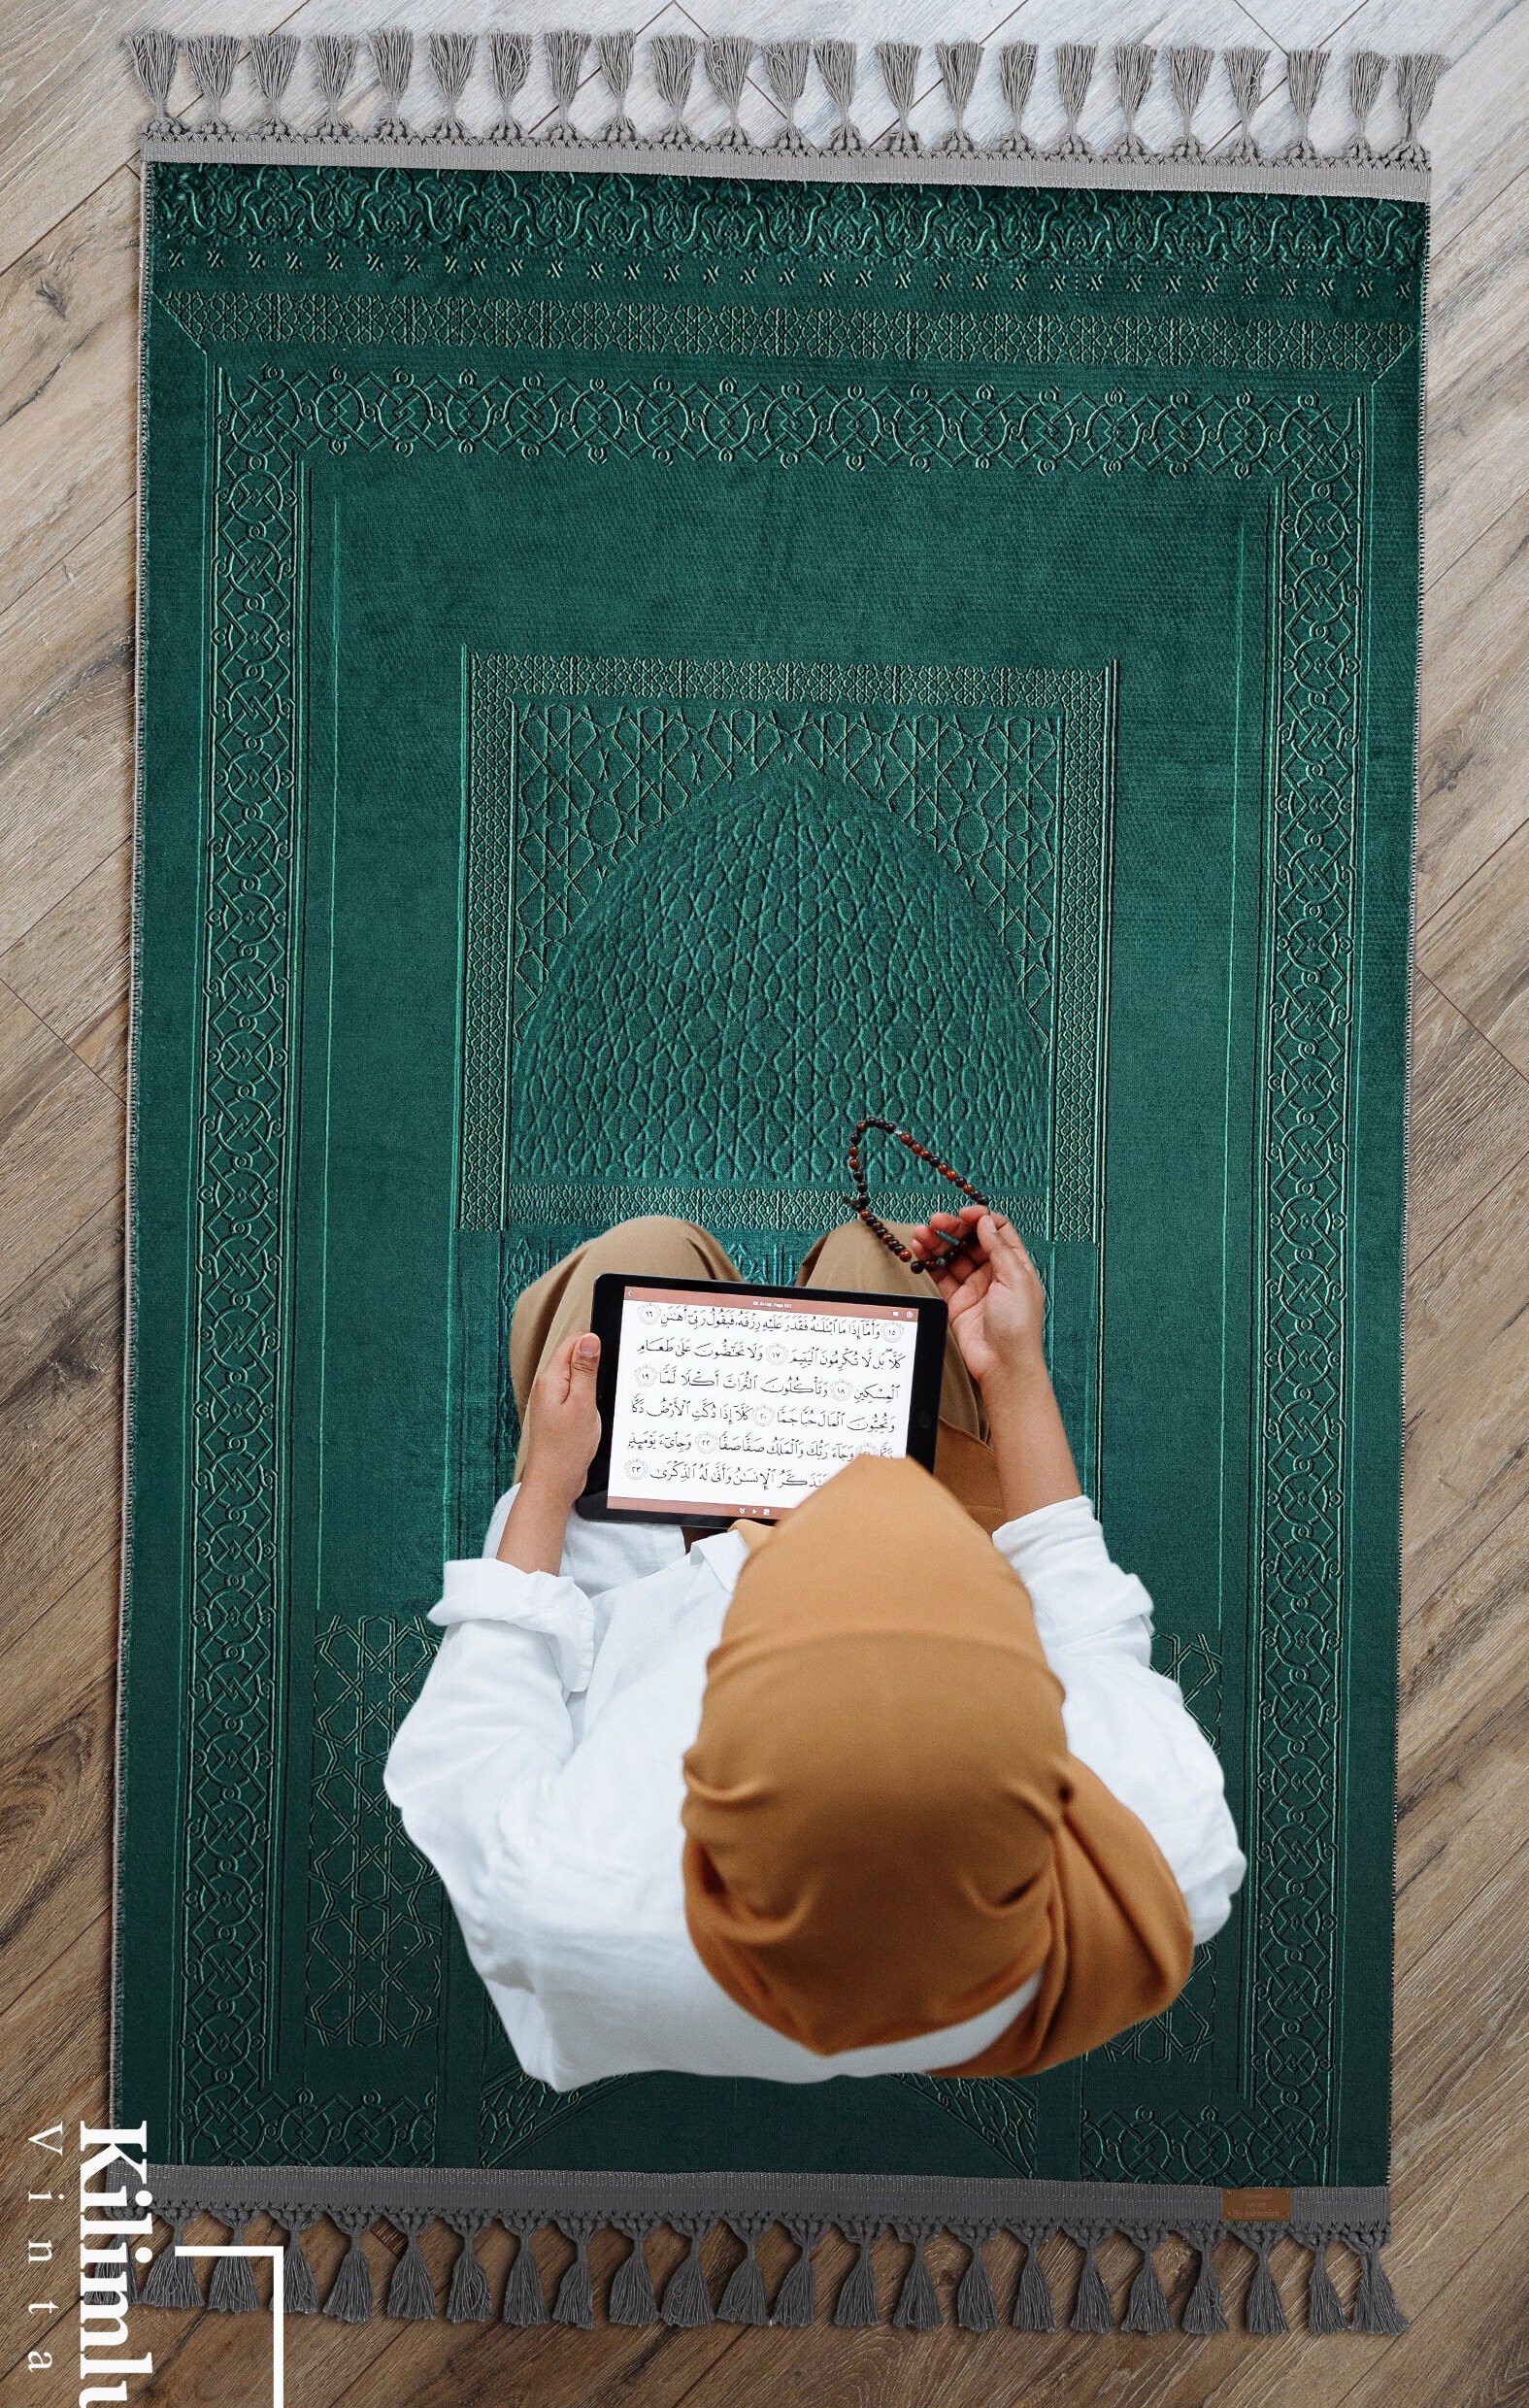 وَأَمَّآ إِذَا مَا ٱبْتَلَىٰهُ فَقَدَرَ عَلَيْهِ رِزْقَهُۥ فَيَقُولُ رَبِّىٓ أَهَٰنَنِ ١٦
كَلَّا ۖ بَل لَّا تُكْرِمُونَ ٱلْيَتِيمَ ١٧ وَلَا تَحَٰٓضُّونَ عَلَىٰ طَعَامِ
ٱلْمِسْكِينِ ١٨ وَتَأْكُلُونَ ٱلتُّرَاثَ أَكْلًا لَّمًّا ١٩
وَتُحِبُّونَ ٱلْمَالَ حُبًّا جَمًّا ٢٠ كَلَّآ إِذَا دُكَّتِ ٱلْأَرْضُ دَكًّا
وَجَآءَ رَبُّكَ وَٱلْمَلَكُ صَفًّا صَفًّا ٢٢ وَجِا۟ىٓءَ يَوْمَئِذٍۭ
ٱلْإِنسَٰنُ وَأَنَّىٰ لَهُ ٱلذِّكْرَىٰ ٢٣
Kilimlu
Vinta